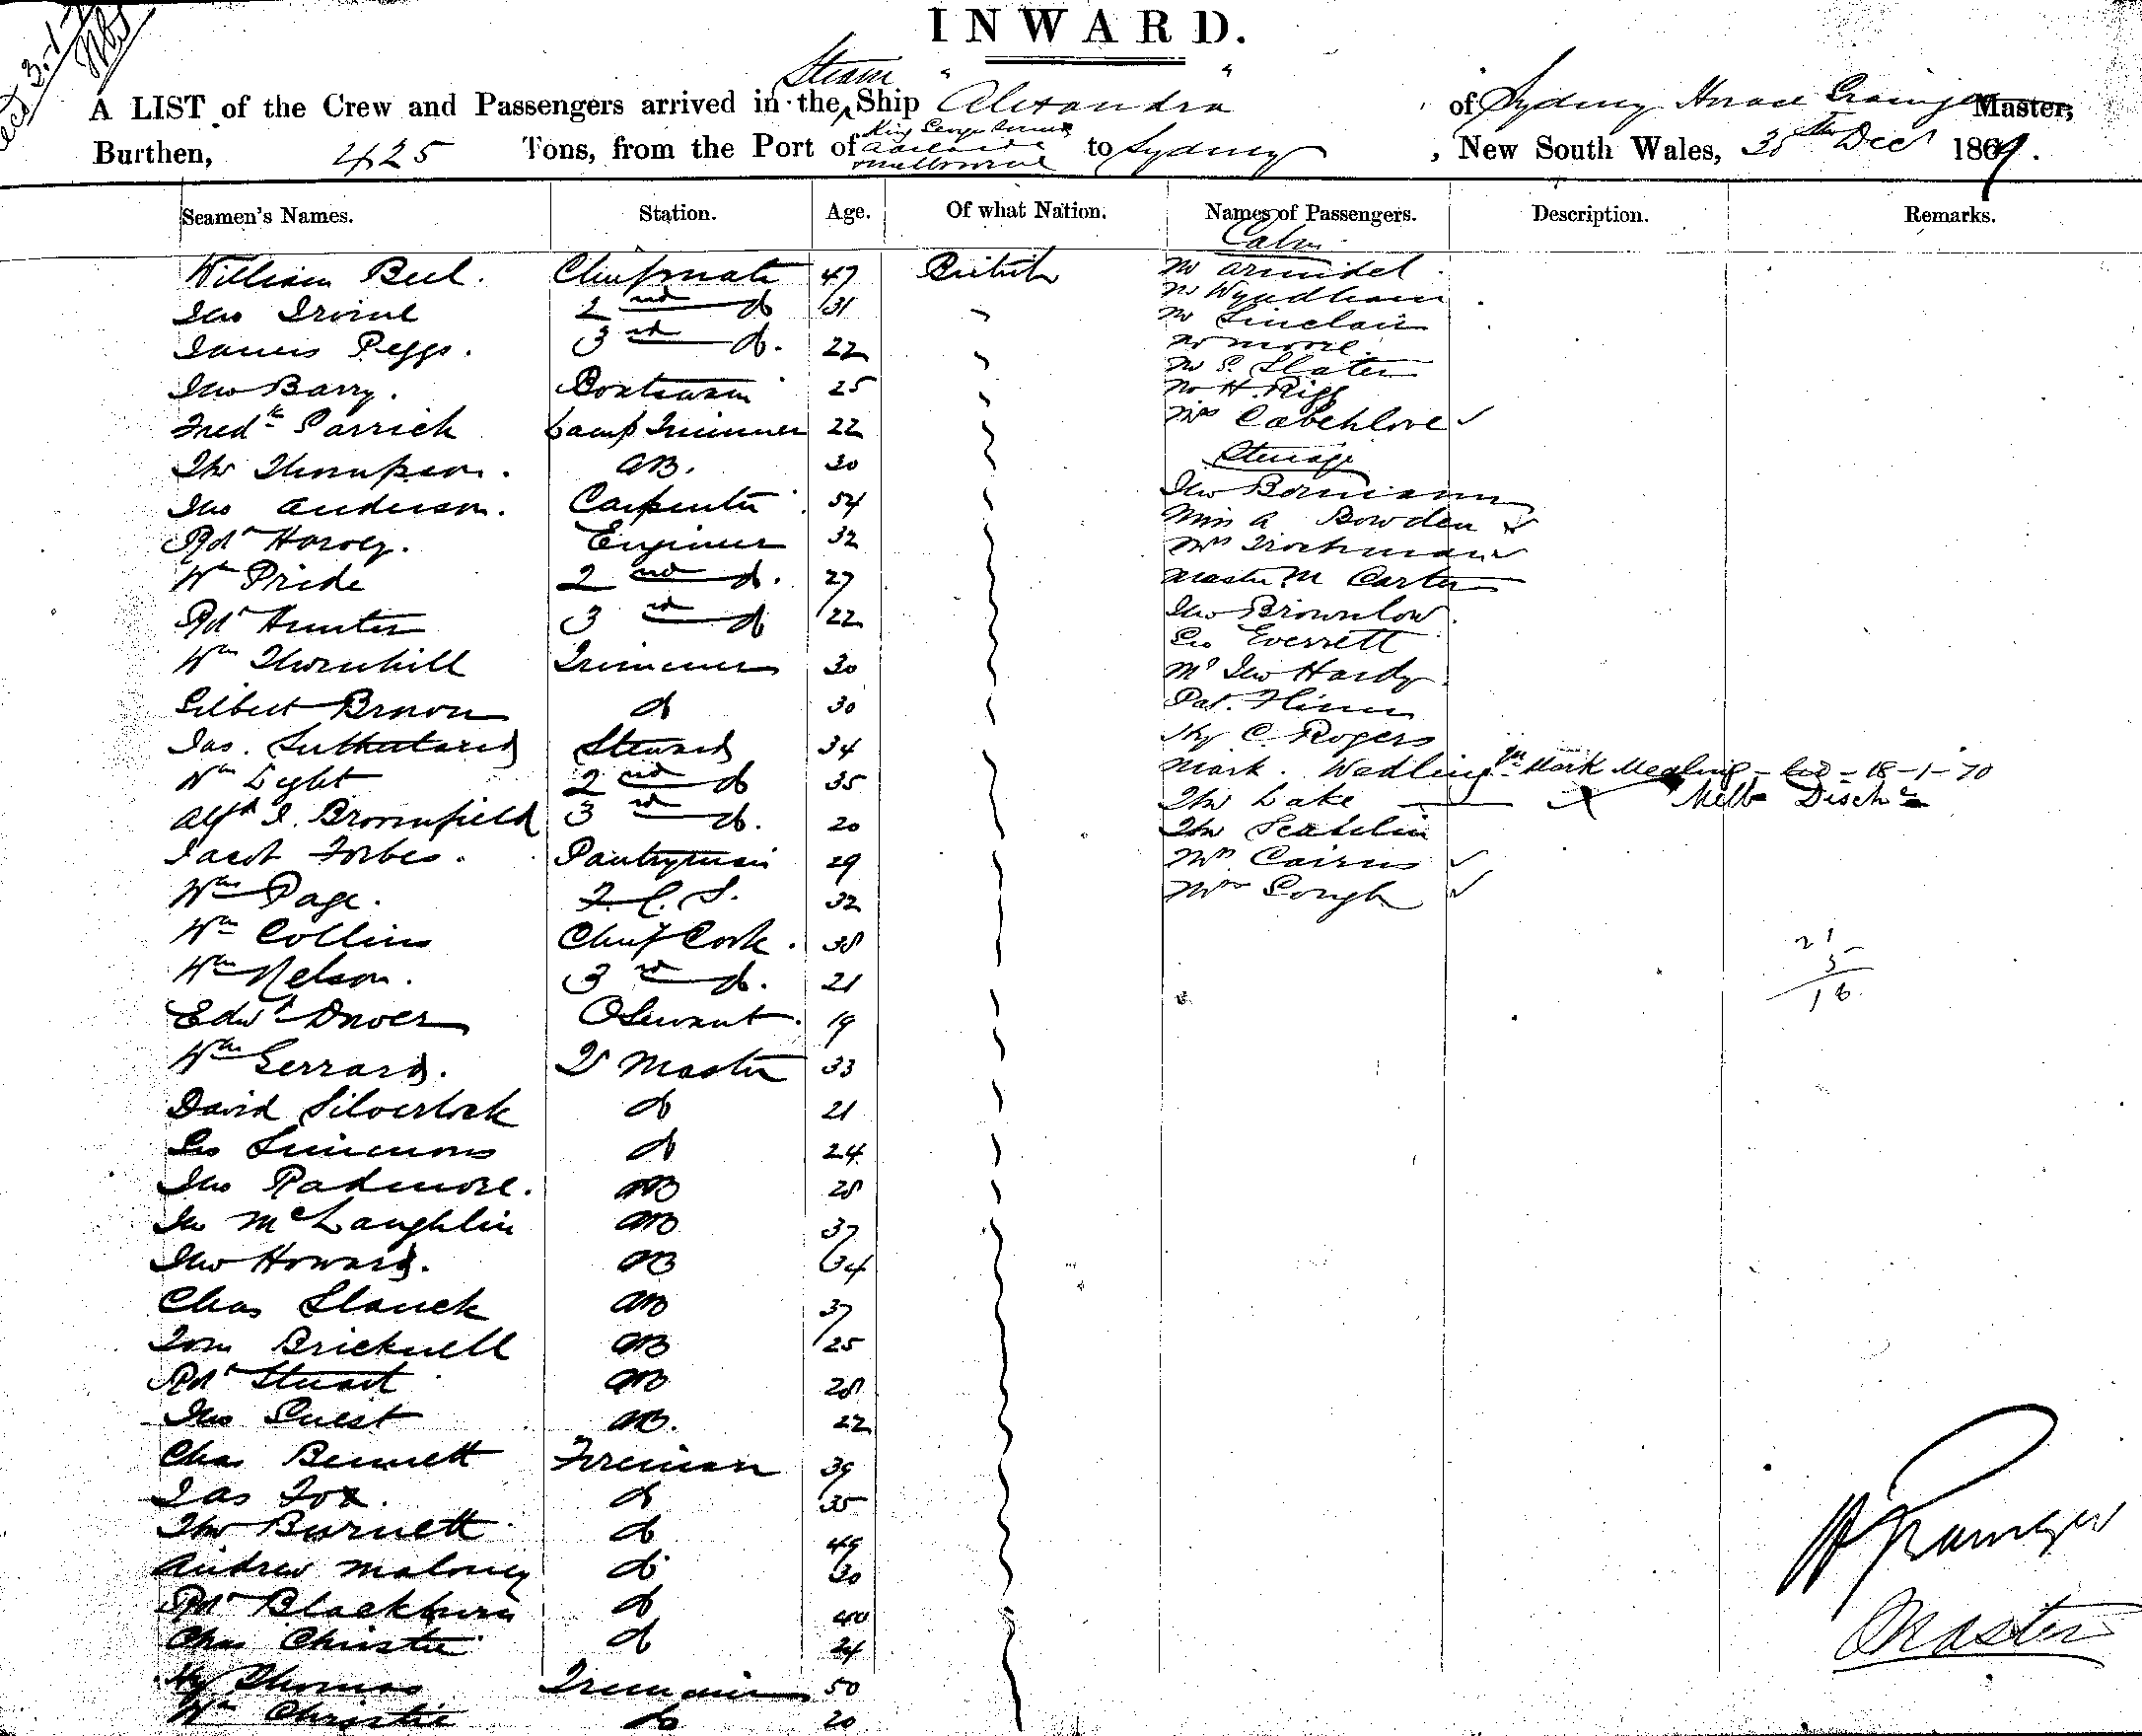 INWARD.
Steam " "
A LIST of the Crew and Passengers arrived in the Ship Alexandra of Sydney Horace Grainger Master,
King Georges Sound
Adelaide
Burthen, 425 Tons, from the Port of Melbourne to Sydney, New South Wales, 30th Decr 1869.
Seamen's Names. Station. Age. Of what Nation. Names of Passengers. Description. Remarks.
Cabin
William Bell. Chief mate 47 British Mr Arundel
Mr Wyndham
Jno Irvine 2nd do 31 Mr Sinclair
James Peggs. 3rd do. 22 Mr Moore.
Mr S. Slater
Jno Barry. Boatswain 25 Mr H. Rigg
Fredk Parrick Lamp Trimmer 22 Mrs
Ths Thompson. AB. 30 Steerage
Jno Anderson. Carpenter 54 Jno Bormann
Miss A Bowden
Rdt Harvey. Engineer 32 Mrs
Wm Pride 2nd do. 27 Master M Carter
Rdt Hunter 3rd do 22 Jno Brownlow.
Geo Everrett
Wm Thornhill Trimmer 30 Mr Jno Hardy
Gilbert Brown do 30 Pat. Flinn
Jas. Sutherland Steward 34 Hy C. Rogers
Wm Light 2nd do 35 Mark. Wadling Mark Mealing 18-1-70
Alfd I. Broomfield 3rd do. 20 Ths Lake X Melb Disch
Ths
Jacob Forbes. Pantryman 29 Mrs Cairns
Wm Page. F. C. S. 32 Mrs Gough
Wm Collins Chief Cook. 38 21
5
Wm Nelson. 3rd do. 21 16
Edwd Dover O Servant. 19
Wm Gerrard. Qr Master 33
David Silverlock do 21
Geo Simmons do 24
Jno Padmore. AB 28
Jno McLaughlin AB 37
Jno Howard. AB 34
Chas Slanck AB 37
Tom Bricknell AB 25
Rdt Stuart AB 28
Jno Guest AB. 22
Chas Bennett Fireman 39
Jas Fox. do 35
Ths Burnett do 49
Andrew Maloney do 30
Rdt Blackburn do 40
Chas Christie do 24
Hy Thomas Trimmer 50
Wm Christie do 20
H Grainger
Master